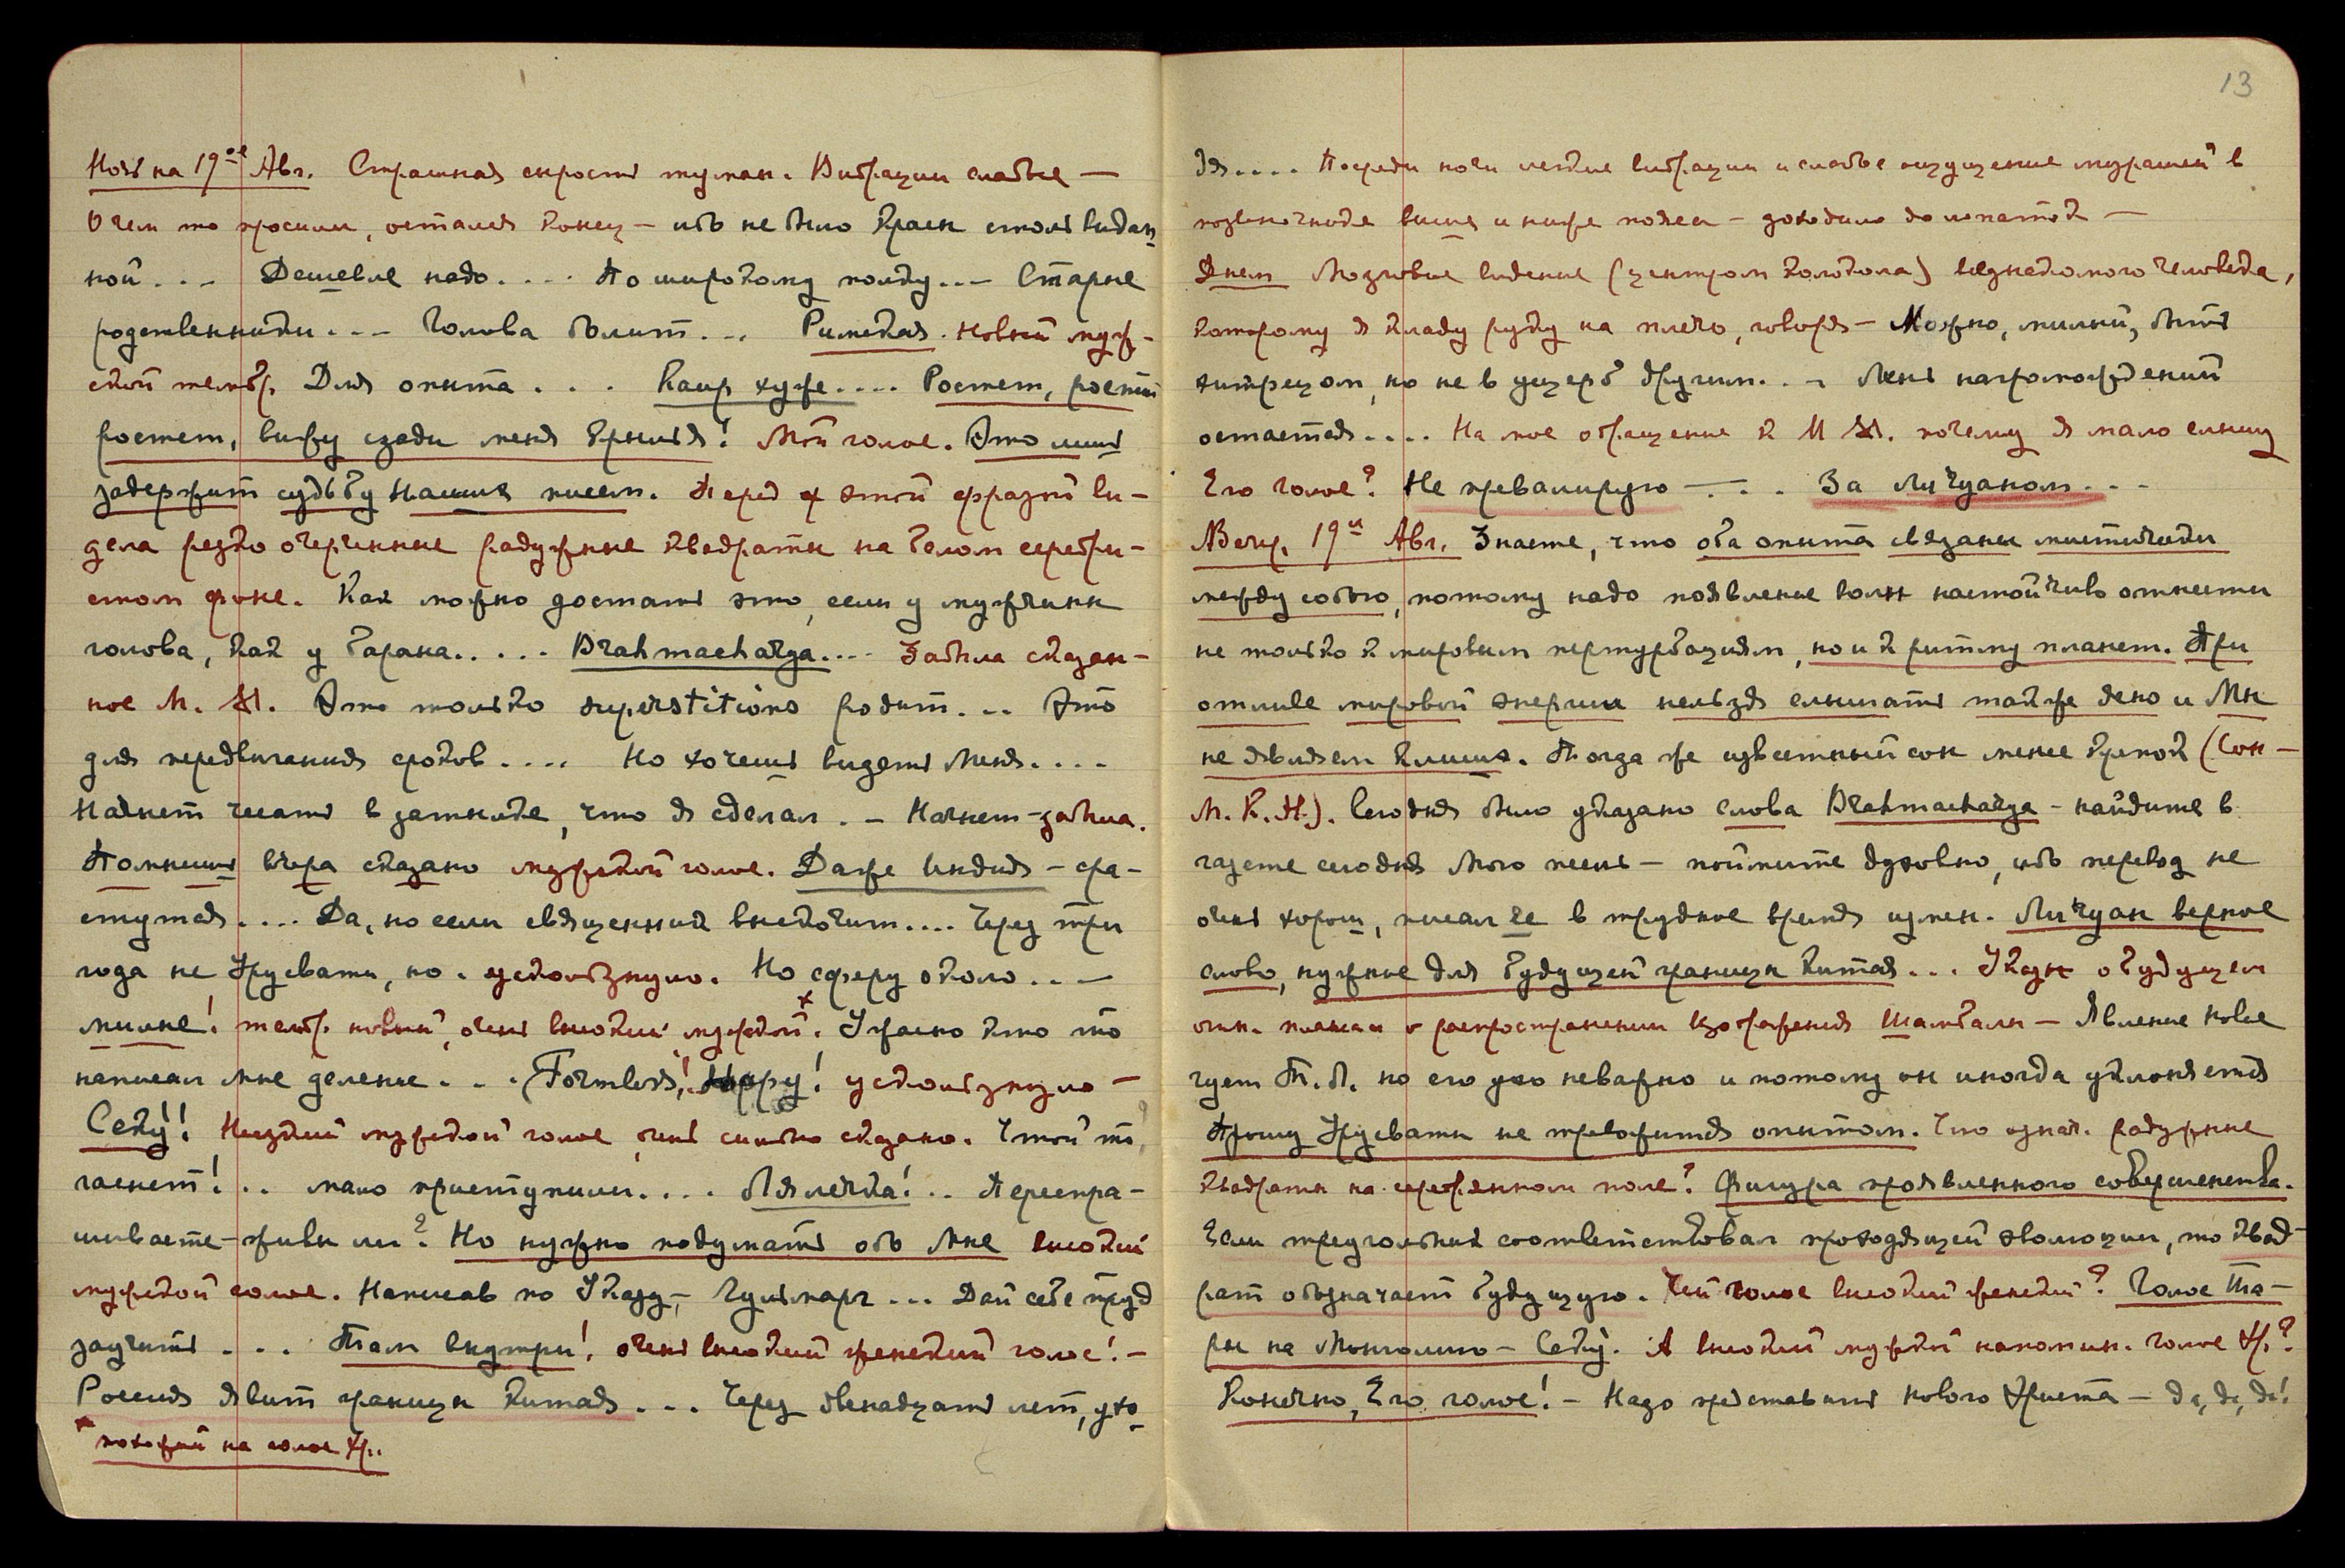 13
Ночь на 19ое Авг. Страшная сырость туман. Вибрации слабые —
О чем то просили, остался конец — чтоб не было краск столь видан
ной... Дешевле надо.... По широкому полду... Старые
родственники... Голова болит... Римская. Новый муж-
ской тембр. Для опыта... Каир хуже.... Ростет, ростет
ростет, вижу сзади меня крылья! Мой голос. Это лишь
задержит судьбу Наших писем. Перед этой фразой ви-
дела резко очерченные радужные квадраты на белом серебри-
стом фоне. Как можно достать это, если у мужчины
голова, как у барана..... Brahmacharya.... Забыла сказан-
ное М. М. Это только superstitions родит... Это
для передвигания сроков.... Но хочешь видеть Меня....
Начнет чесать в затылке, что я сделал. — Начнет — забыла.
Помнишь вчера сказано мужской голос. Даже Индия — сра-
стутся.... Да, но если священник вскочит.... Через три
года не Урусвати, но. ускользнуло. Но сферу около...—
милые! тембр. новый, очень высокий мужской.* Ужасно кто то
написал мне деление... Formless! Happy! ускользнуло —
Седу! Низкий мужской голос, очень сильно сказано. Чтой то
гаснет!.. мало приступили.... Лялечка!.. Переспра-
шиваете — живы ли? Но нужно подумать обо Мне высокий
мужской голос. Написав по Указу, — Гульмарг... Дай себе труд
заучить... Там внутри! очень высокий женский голос! —
Россия явит границы Китая... Через двенадцать лет, ухо
* похожий на голос Хр.
дя.... Посреди ночи легкие вибрации и слабые ощущение мурашей в
позвоночнике выше и ниже пояса — доходило до лопаток —
Днем Мозговые видение (центром колокола) незнакомого человека,
которому я кладу руку на плечо, говоря — Можно, милый, быть
хитрецом, но не в ущерб другим... Лень нагромождений
остается.... На мое обращение к М М. почему я мало слышу
Его голос? Не превалирую —... За Личуаном...
Вечер. 19й Авг. Знаете, что оба опыта связаны мистически
между собою, потому надо появление волн настойчиво отнести
не только к мировым пертурбациям, но и к ритму планет. При
отливе мировой энергии нельзя слышать также ясно и Мы
не являем Клише. Тогда же известный сон менее крепок (Сон —
М. К. Н.). Сегодня было указано слова Brahmacharya — найдите в
газете сегодня Мою песнь — поймите духовно, чтоб перевод не
очень хорош, писал ее в трудное время измен. Личуан верное
слово, нужное для будущей границы Китая... Указы о будущем
отн. письма о распространении изображения Шамбалы — Явление новые
чует Т. Л. но его ухо неважно и потому он иногда уклоняется
Прошу Урусвати не тревожиться опытом. Что означ. радужные
квадраты на серебрянном поле? Фигура проявленного совершенства.
Если треугольник соответствовал проходящей эволюции, то квад-
рат обозначает будущую. Чей голос высокий женский? Голос Та-
ры на Монголию — Седу. А высокий мужской напомин. голос Хр.?
Конечно, Его голос! — Надо представить нового Христа — да, да, да!